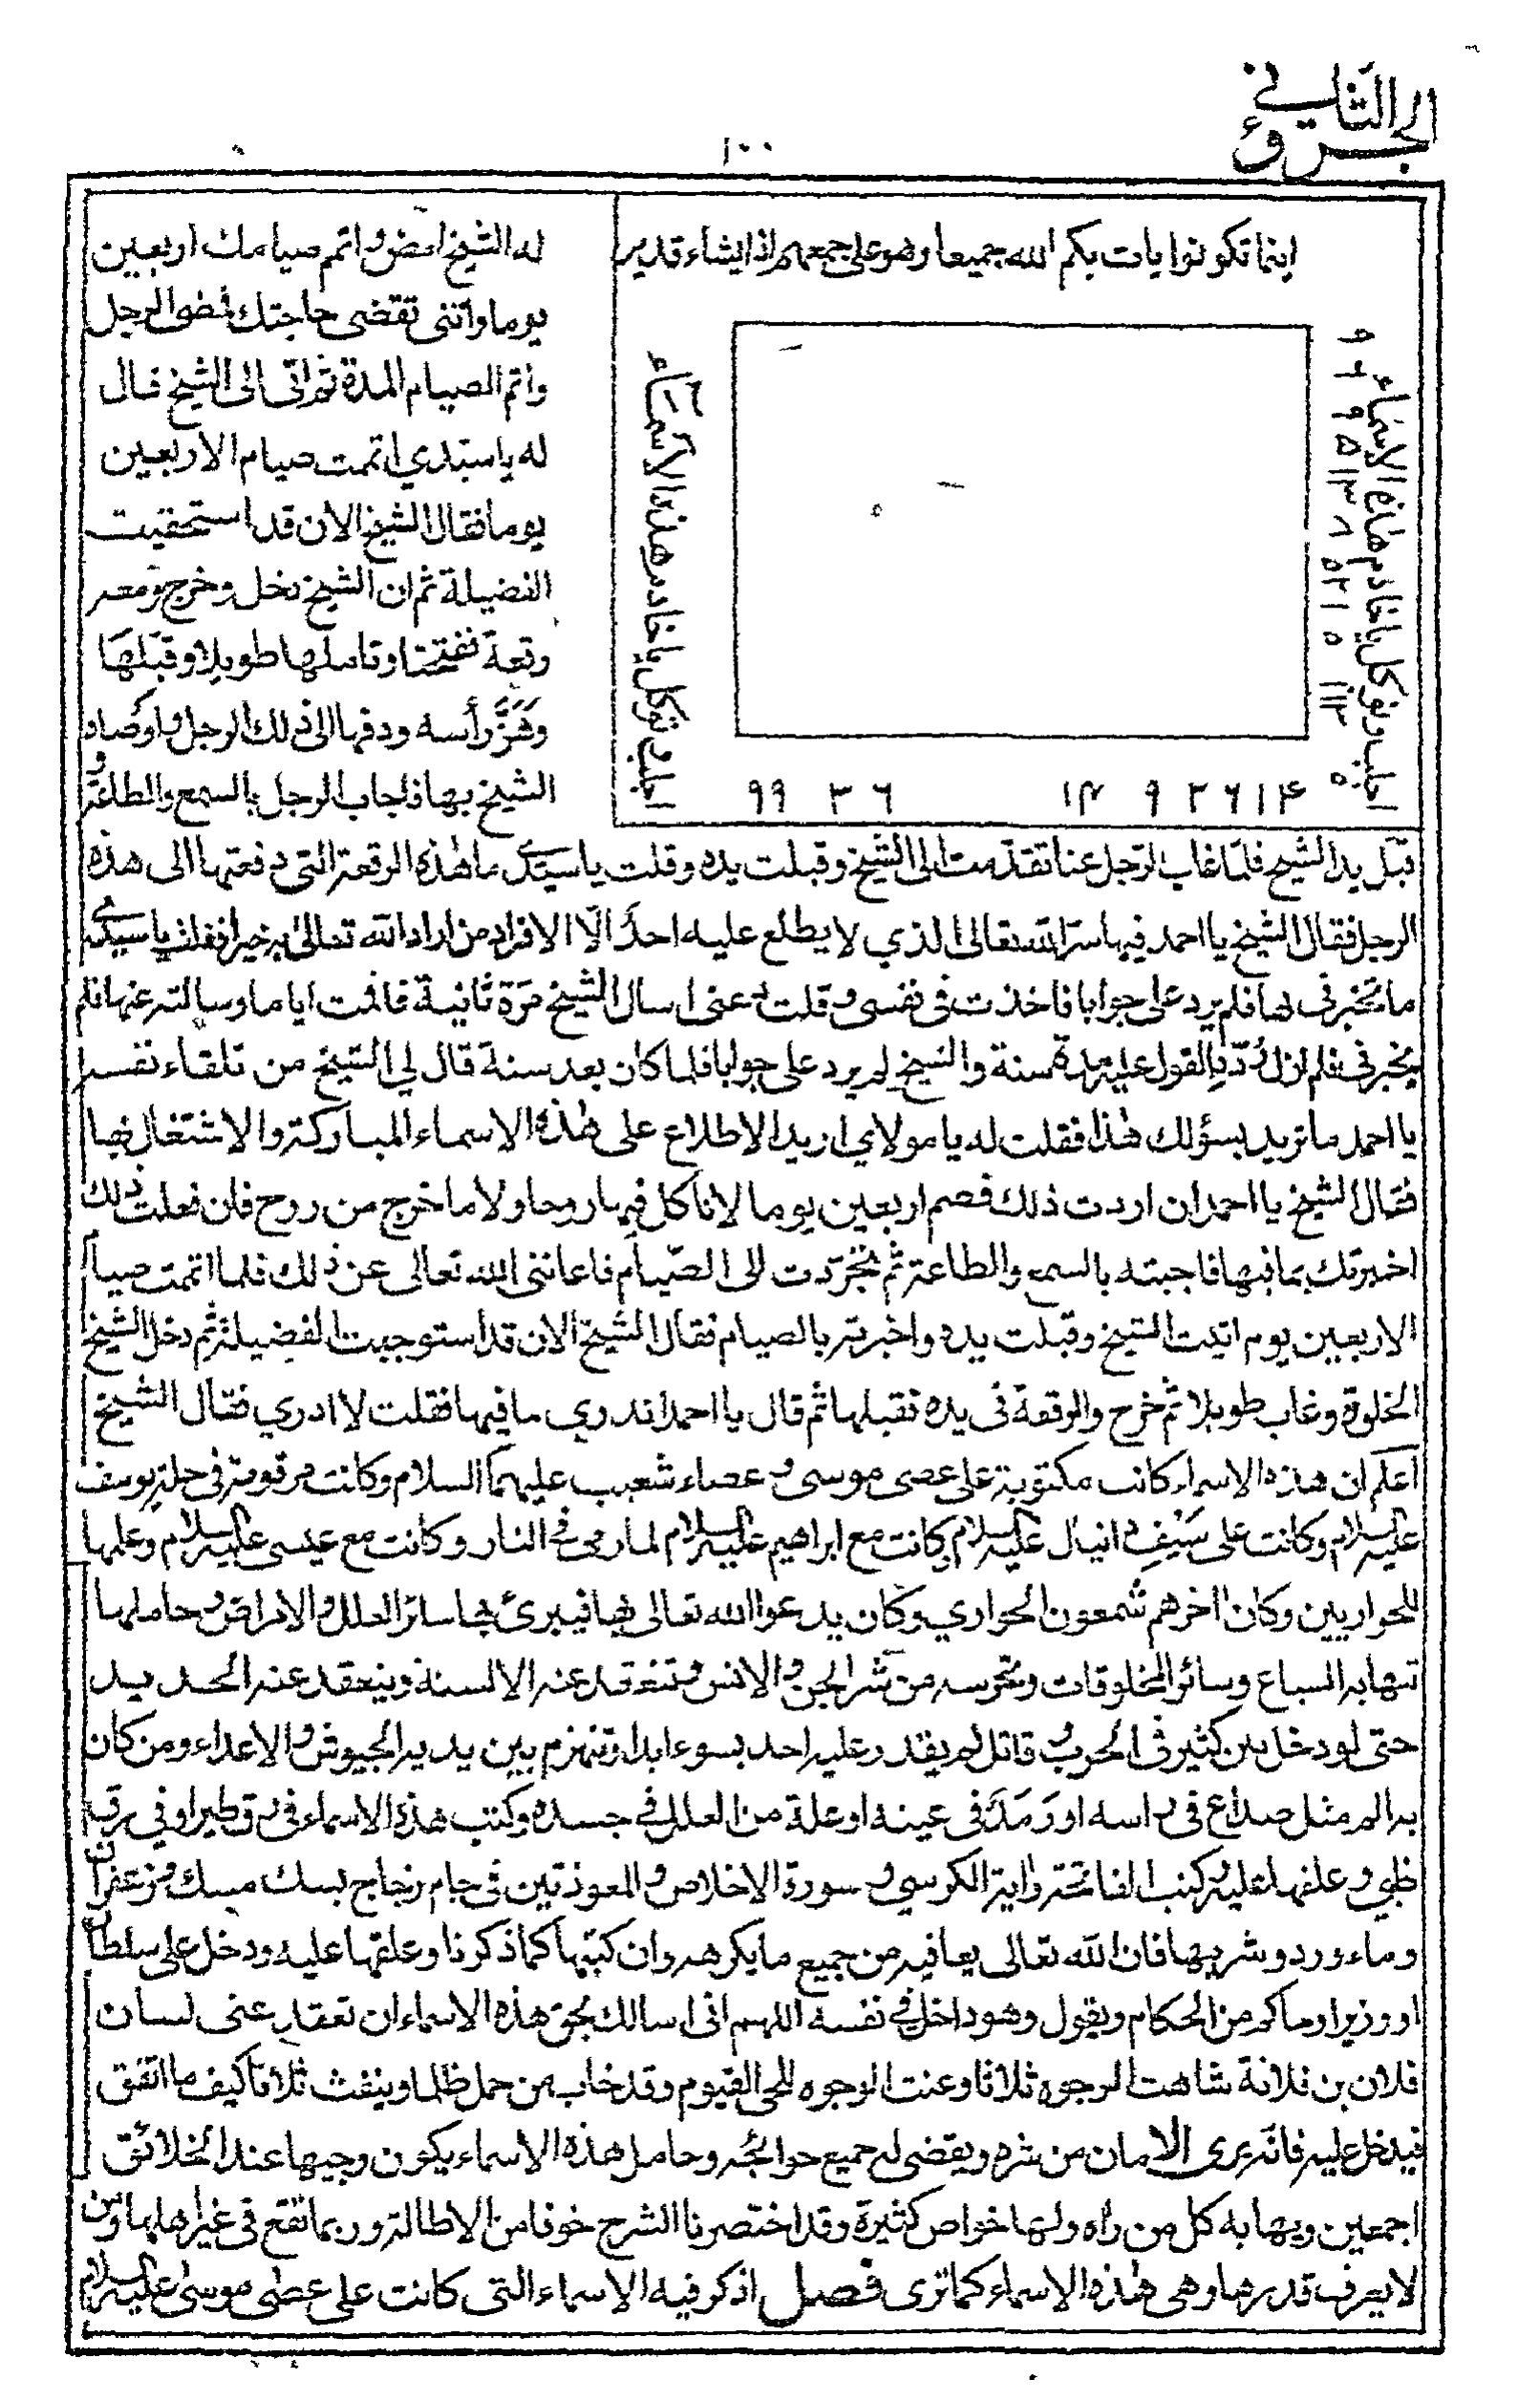 الجزء الثاني
١٠٠
اينما تكونوا يات بكم الله جميعا وهو على جمعهم اذا يشاء قدير
اجلب وتوكل يا خادم هذه الاسماء
اجلب وتوكل يا خادم هذه الاسماء
٩٩ ٣ ٦
له الشيخ امض واتم صيامك اربعين
يوما وأتنى تقضى حاجتك فمضى الرجل
واتم الصيام المدة ثم اتى الى الشيخ فال
له يا سيدي اتممت صيام الاربعين
يوما فقال الشيخ الان قد استحقيت
الفضيلة ثم ان الشيخ دخل وخرج ومعه
رقعة ففتحها وتاملها طويلا وقبلها
وهز رأسه ودفعها الى ذلك الرجل واوصاه
الشيخ بها فاجاب الرجل بالسمع والطاعة و
قبل يد الشيخ فلما غاب الرجل عنا تقدمت الى الشيخ وقبلت يده وقلت يا سيدى ما هذه الرقعة التى دفعتها الى هذه
الرجل فقال الشيخ يا احمد فيها سر الله تعالى الذي لا يطلع عليه احد الا الافراد من اراد الله تعالى به خيرا فقلت يا سيدى
ما تخبرنى بها فلم يرد على جوابا فاخذت فى نفسى وقلت دعنى اسال الشيخ مرة ثانية فاقمت اياما وسالته عنها فلم
يخبرنى فلم ازل اردد القول عليه مدة سنة والشيخ لم يرد على جوابا فلما كان بعد سنة قال لي الشيخ من تلقاء نفسه
يا احمد ما تريد بسؤلك هذا فقلت له يا مولاي اريد الاطلاع على هذه الاسماء المباركة والاشتغال بها
فقال الشيخ يا احمد ان اردت ذلك فصم اربعين يوما لا تاكل فيها روحا ولا ما خرج من روح فان فعلت ذلك
اخبرتك بما فيها فاجبته بالسمع والطاعة ثم تجردت الى الصيام فاعاننى الله تعالى عن ذلك فلما اتممت صيام
الاربعين يوم اتيت الشيخ وقبلت يده واخبرته بالصيام فقال الشيخ الان قد استوجبت الفضيلة ثم دخل الشيخ
الخلوة وغاب طويلا ثم خرج والرقعة فى يده فقبلها ثم قال يا احمد اتدري ما فيها فقلت لا ادري فقال الشيخ
اعلم ان هذه الاسماء كانت مكتوبة على عصى موسى و عصاء شعيب عليهما السلام وكانت مرقومة فى حلة يوسف
عليه السلام وكانت على سيف دانيال عليه السلام وكانت مع ابراهيم عليه السلام لما رمى فى النار وكانت مع عيسى عليه السلام وعلمها
للحواريين وكان اخرهم شمعون الحواري وكان يدعوا الله تعالى بها فيبرئ بها سائر العلل والامراض وحاملها
تهابه السباع وسائر المخلوقات وتحرسه من شر الجن والانس وتنعقد عنه الالسنة وينعقد عنه الحديد
حتى لو دخل بين كثير فى الحرب و قاتل لم يقدر عليه احد بسوء ابدا وتنهزم بين يديه الجيوش والاعداء ومن كان
به الم مثل صداع فى راسه او رمد فى عينه او علة من العلل فى جسده وكتب هذه الاسماء فى رق طير او في رق
ظبي وعلقها عليه وكتب الفاتحة واية الكرسي و سورة الاخلاص والمعوذتين فى جام زجاج بسك مسك وزعفران
وماء ورد وشربها فان الله تعالى يعافيه من جميع ما يكرهه وان كتبها كما ذكرنا وعلقها عليه ودخل على سلطان
او وزير او حاكم من الحكام ويقول وهو داخل فى نفسه اللهم انى اسالك بحق هذه الاسماء ان تعقد عنى لسان
فلان بن فلانة شاهت الوجوه ثلاثا وعنت الوجوه للحى القيوم وقد خاب من حمل ظلما وينفث ثلاثا كيف ما اتفق
فيدخل عليه فانه يرى الامان من شره ويقضى له جميع حوائجه وحامل هذه الاسماء يكون وجيها عند الخلائق
اجمعين ويهابه كل من راه ولها خواص كثيرة وقد اختصرنا الشرح خوفا من الاطالة وربما تقع فى غير اهلها ومن
لا يعرف قدرها وهى هذه الاسماء كما ترى فصل اذكر فيه الاسماء التى كانت على عصى موسى عليه السلام